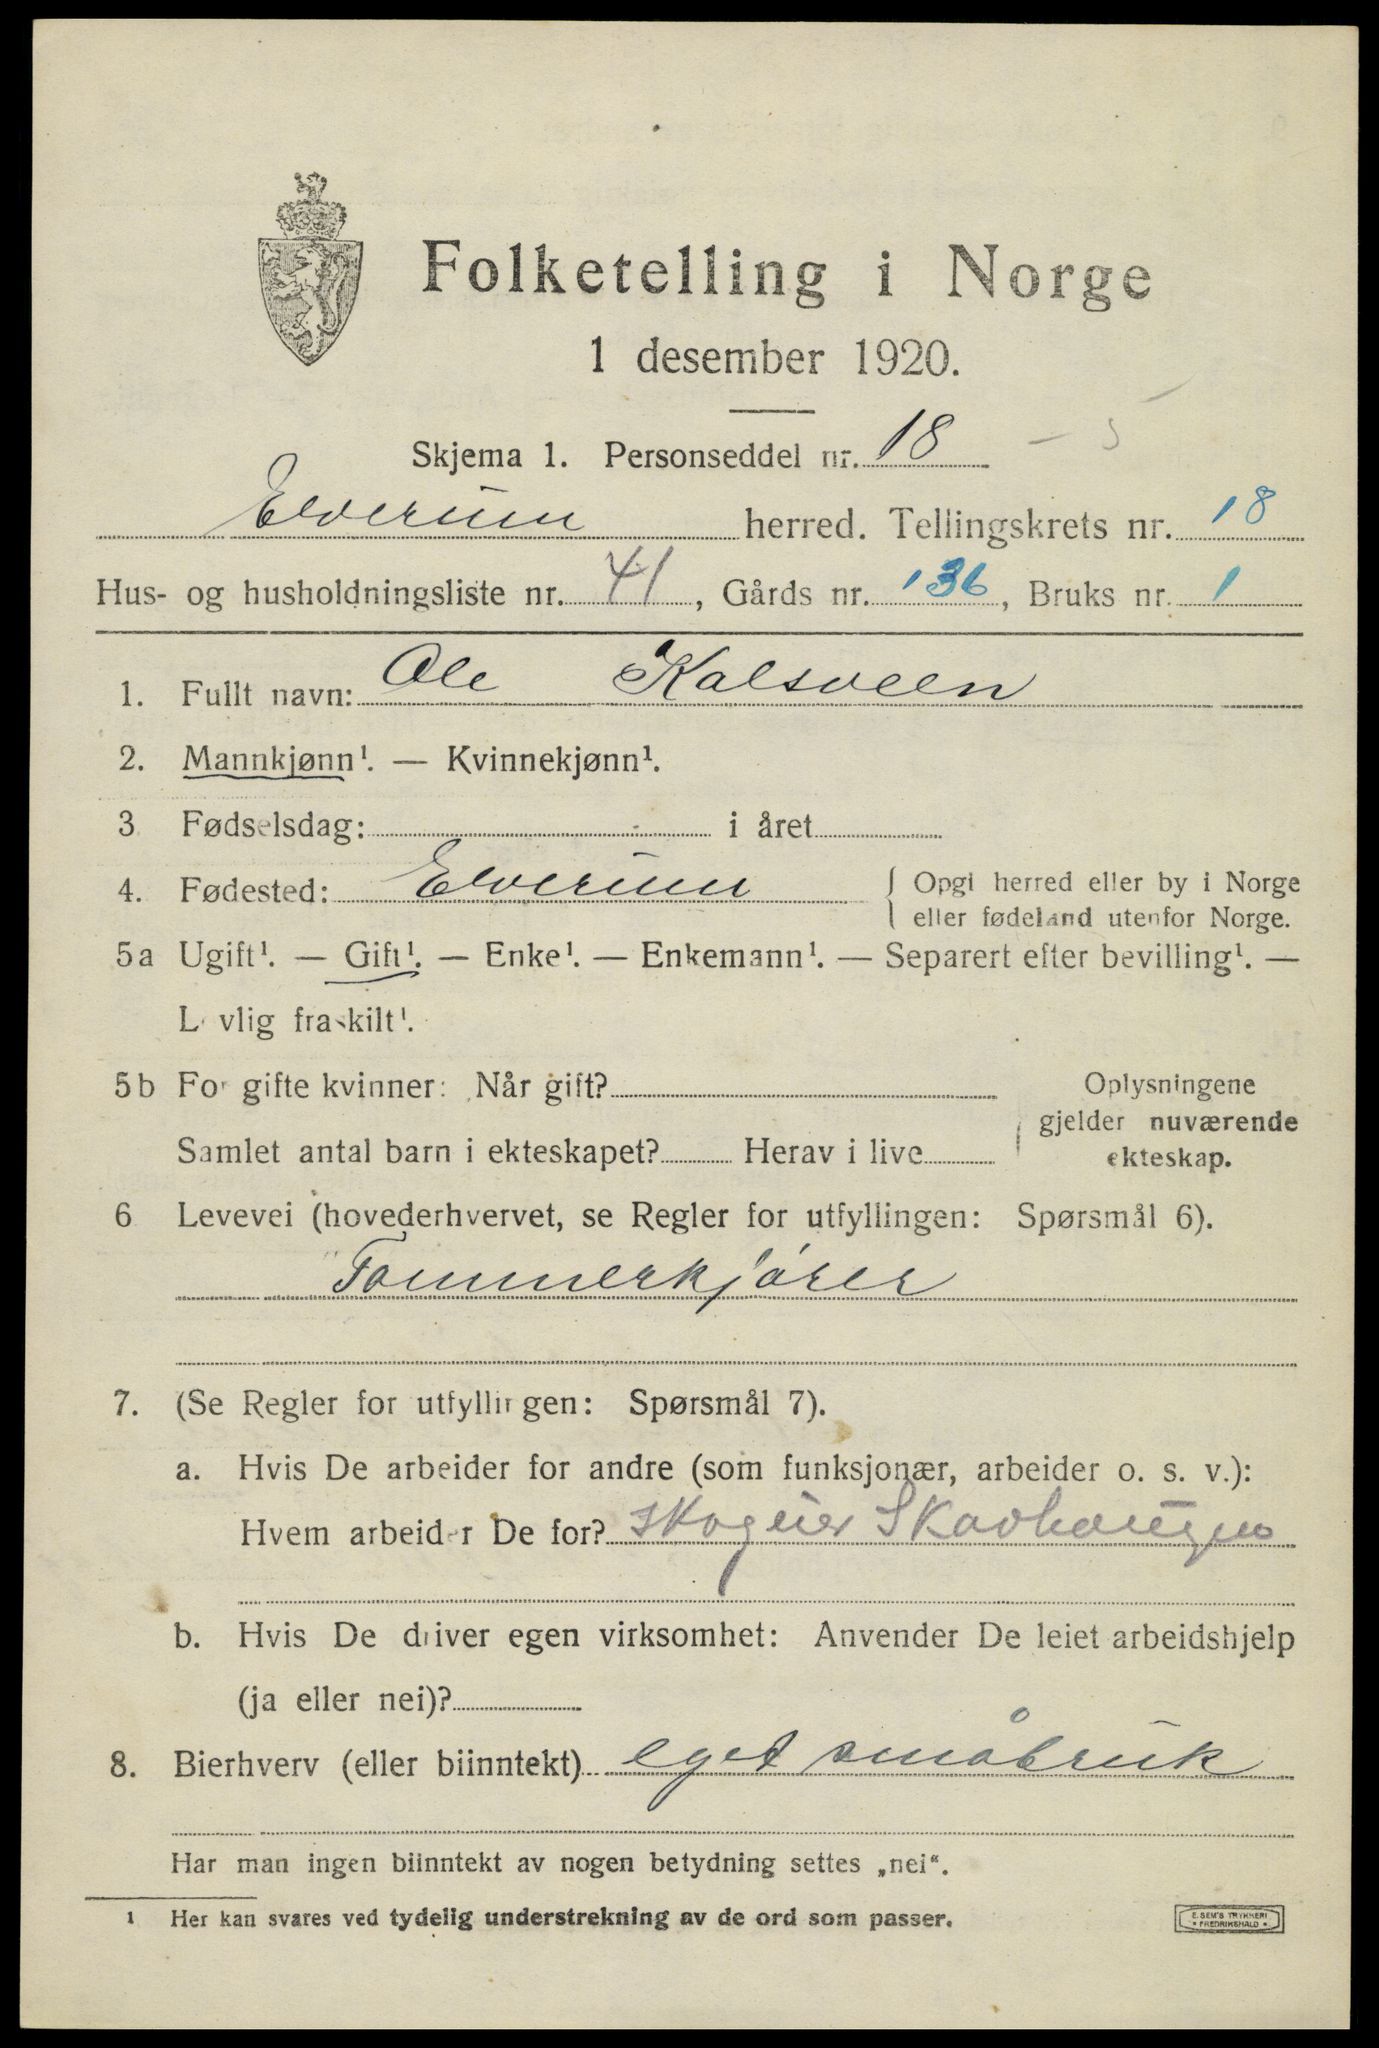 Folketelling i Norge
1 desember 1920.
Skjema 1. Personseddel nr. 18 – 5
Elverum herred. Tellingskrets nr. 18
Hus- og husholdningsliste nr. 41, Gårds nr. 136, Bruks nr. 1
1. Fullt navn: Ole Kalsveen
2. Mannkjønn¹. — Kvinnekjønn¹.
3 Fødselsdag: i året
4. Fødested: Elverum { Opgi herred eller by i Norge
eller fødeland utenfor Norge.
5a Ugift¹. — Gift¹. — Enke¹. — Enkemann¹. — Separert efter bevilling¹. —
Lovlig fraskilt¹.
5b For gifte kvinner: Når gift? Oplysningene
gjelder nuværende
Samlet antal barn i ekteskapet? Herav i live ekteskap.
6 Levevei (hovederhvervet, se Regler for utfyllingen: Spørsmål 6).
Tømmerkjører
7. (Se Regler for utfyllingen: Spørsmål 7).
a. Hvis De arbeider for andre (som funksjonær, arbeider o. s. v.):
Hvem arbeider De for? skogeier Skavhaugen
b. Hvis De driver egen virksomhet: Anvender De leiet arbeidshjelp
(ja eller nei)?
8. Bierhverv (eller biinntekt) eget småbruk
Har man ingen biinntekt av nogen betydning settes „nei“.
¹ Her kan svares ved tydelig understrekning av de ord som passer.
E. SEM'S TRYKKERI
• FREDRIKSHALD •